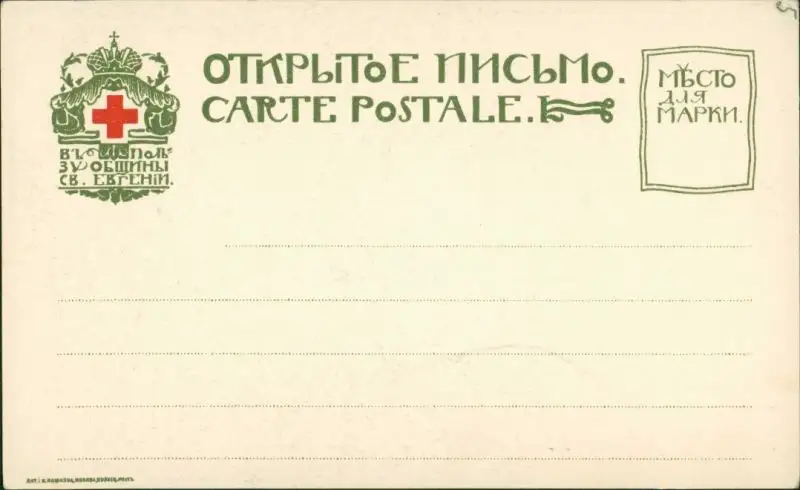 ОТКРЫТОЕ ПИСЬМО.
CARTE POSTALE.
МѢСТО
ДЛЯ
МАРКИ.
ВЪ ПОЛЬ=
ЗУ ОБЩИНЫ
СВ. ЕВГЕНІИ.